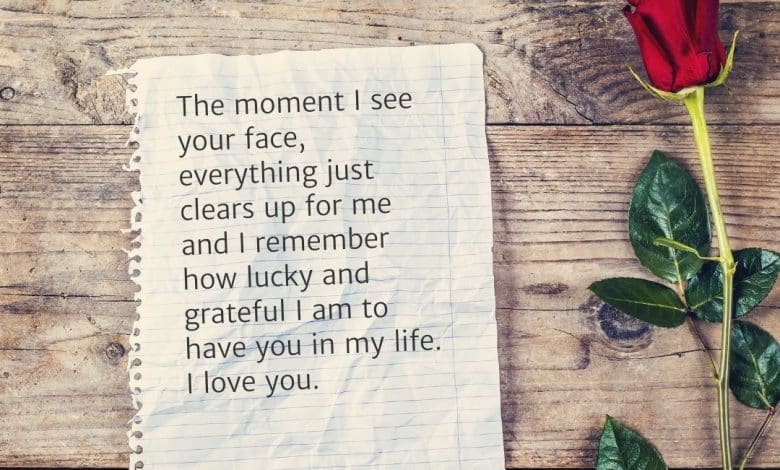 The moment I see
your face,
everything just
clears up for me
and I remember
how lucky and
grateful I am to
have you in my life.
I love you.